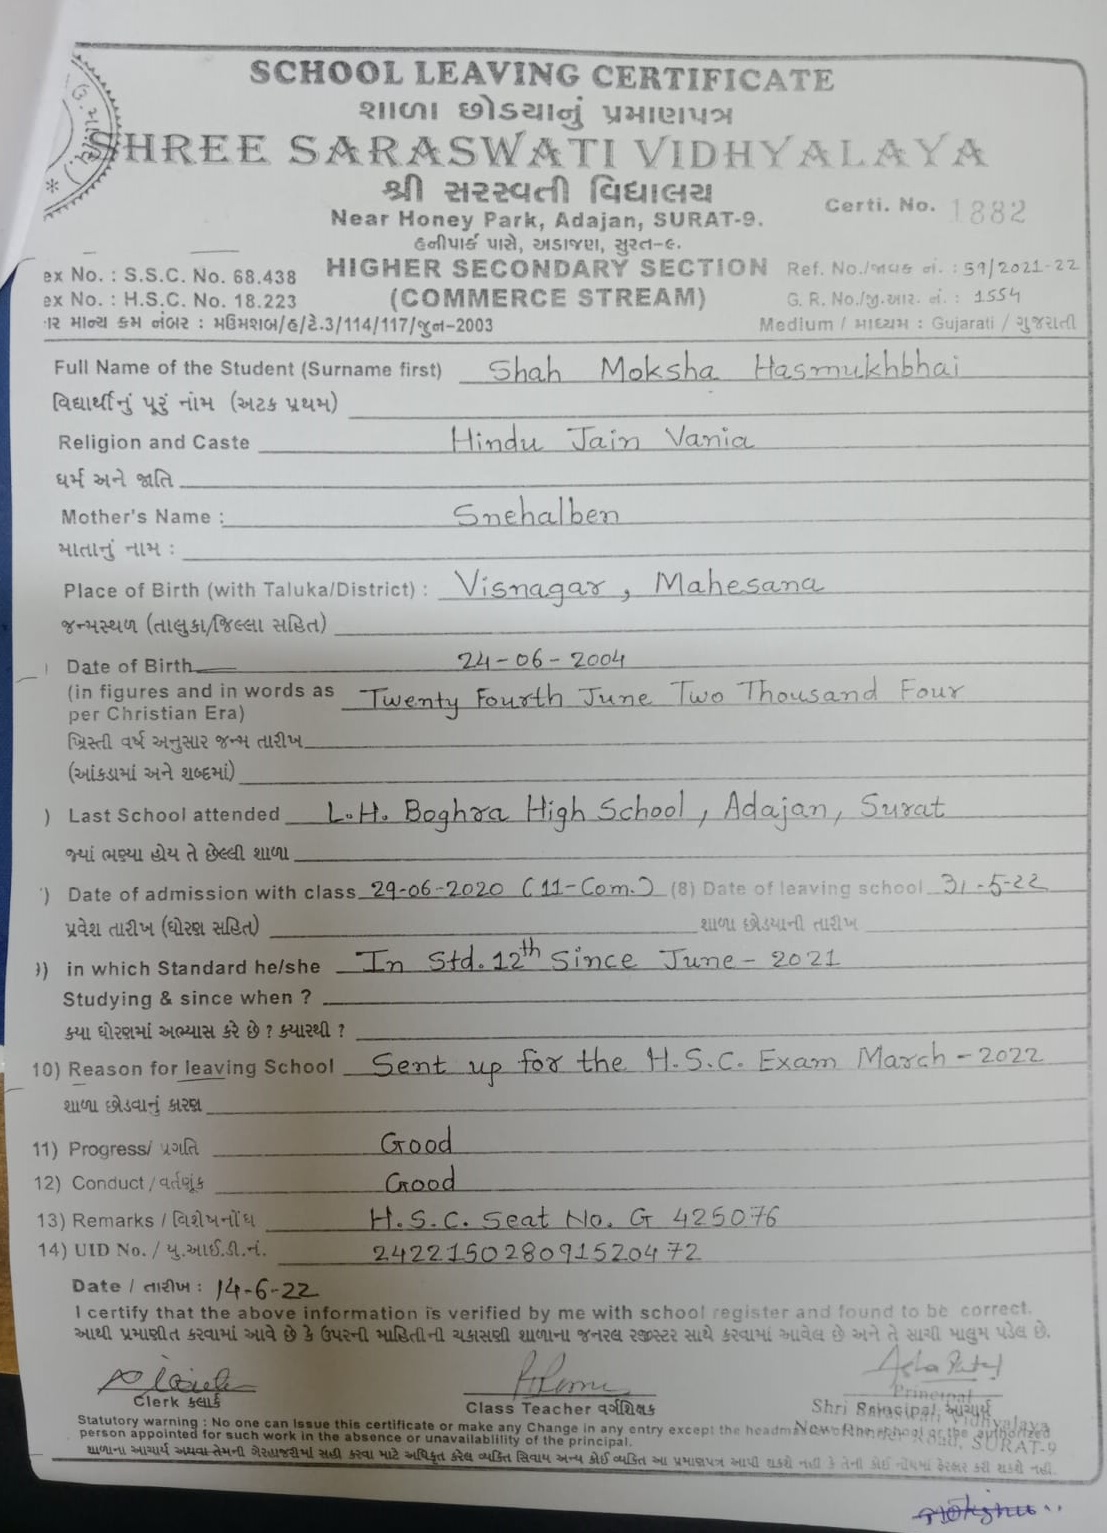 SCHOOL LEAVING CERTIFICATE
શાળા છોડયાનું પ્રમાણપત્ર
SHREE SARASWATI VIDHYALAYA
શ્રી સરસ્વતી વિદ્યાલય
Near Honey Park, Adajan, SURAT-9.
Certi. No. 1882
હનીપાર્ક પાસે, અડાજણ, સુરત-૯.
ex No. : S.S.C. No. 68.438 HIGHER SECONDARY SECTION Ref. No./જાવક નં. : 59/2021-22
ex No. : H.S.C. No. 18.223 (COMMERCE STREAM) G. R. No./જી.આર. નં. : 1554
માન્ય ક્રમ નંબર : મઉમશબ/હ/ટે.3/114/117/જુન-2003 Medium / માધ્યમ : Gujarati / ગુજરાતી
Full Name of the Student (Surname first) Shah Moksha Hasmukhbhai
વિદ્યાર્થીનું પૂરું નામ (અટક પ્રથમ)
Religion and Caste Hindu Jain Vania
ધર્મ અને જાતિ
Mother's Name : Snehalben
માતાનું નામ :
Place of Birth (with Taluka/District) : Visnagar, Mahesana
જન્મસ્થળ (તાલુકા/જિલ્લા સહિત)
Date of Birth 24-06-2004
(in figures and in words as Twenty Fourth June Two Thousand Four
per Christian Era)
ખ્રિસ્તી વર્ષ અનુસાર જન્મ તારીખ
(આંકડામાં અને શબ્દમાં)
) Last School attended L.H. Boghra High School, Adajan, Surat
જ્યાં ભણ્યા હોય તે છેલ્લી શાળા
) Date of admission with class 29-06-2020 (11-Com.) (8) Date of leaving school 31-5-22
પ્રવેશ તારીખ (ધોરણ સહિત) શાળા છોડયાની તારીખ
) in which Standard he/she In Std. 12th Since June - 2021
Studying & since when ?
કયા ધોરણમાં અભ્યાસ કરે છે ? ક્યારથી ?
10) Reason for leaving School Sent up for the H.S.C. Exam March - 2022
શાળા છોડવાનું કારણ
11) Progress/ પ્રગતિ Good
12) Conduct / વર્તણૂંક Good
13) Remarks / વિશેષનોંધ H.S.C. Seat No. G 425076
14) UID No. / યુ.આઈ.ડી.નં. 242215028091520472
Date / તારીખ : 14-6-22
I certify that the above information is verified by me with school register and found to be correct.
આથી પ્રમાણીત કરવામાં આવે છે કે ઉપરની માહિતીની ચકાસણી શાળાના જનરલ રજીસ્ટર સાથે કરવામાં આવેલ છે અને તે સાચી માલુમ પડેલ છે.
Asha Patel
Clerk ક્લાર્ક Class Teacher વર્ગશિક્ષક Principal આચાર્ય
Principal
Shri Saraswati Vidhyalaya
SURAT-9
Statutory warning : No one can Issue this certificate or make any Change in any entry except the headma school or the authorized
person appointed for such work in the absence or unavailability of the principal.
શાળાના આચાર્ય અથવા તેમની ગેરહાજરીમાં સહી કરવા માટે અધિકૃત કરેલ વ્યક્તિ સિવાય અન્ય કોઈ વ્યક્તિ આ પ્રમાણપત્ર આપી શકશે નહી કે તેની કોઈ નોંધમાં ફેરફાર કરી શકશે નહી.